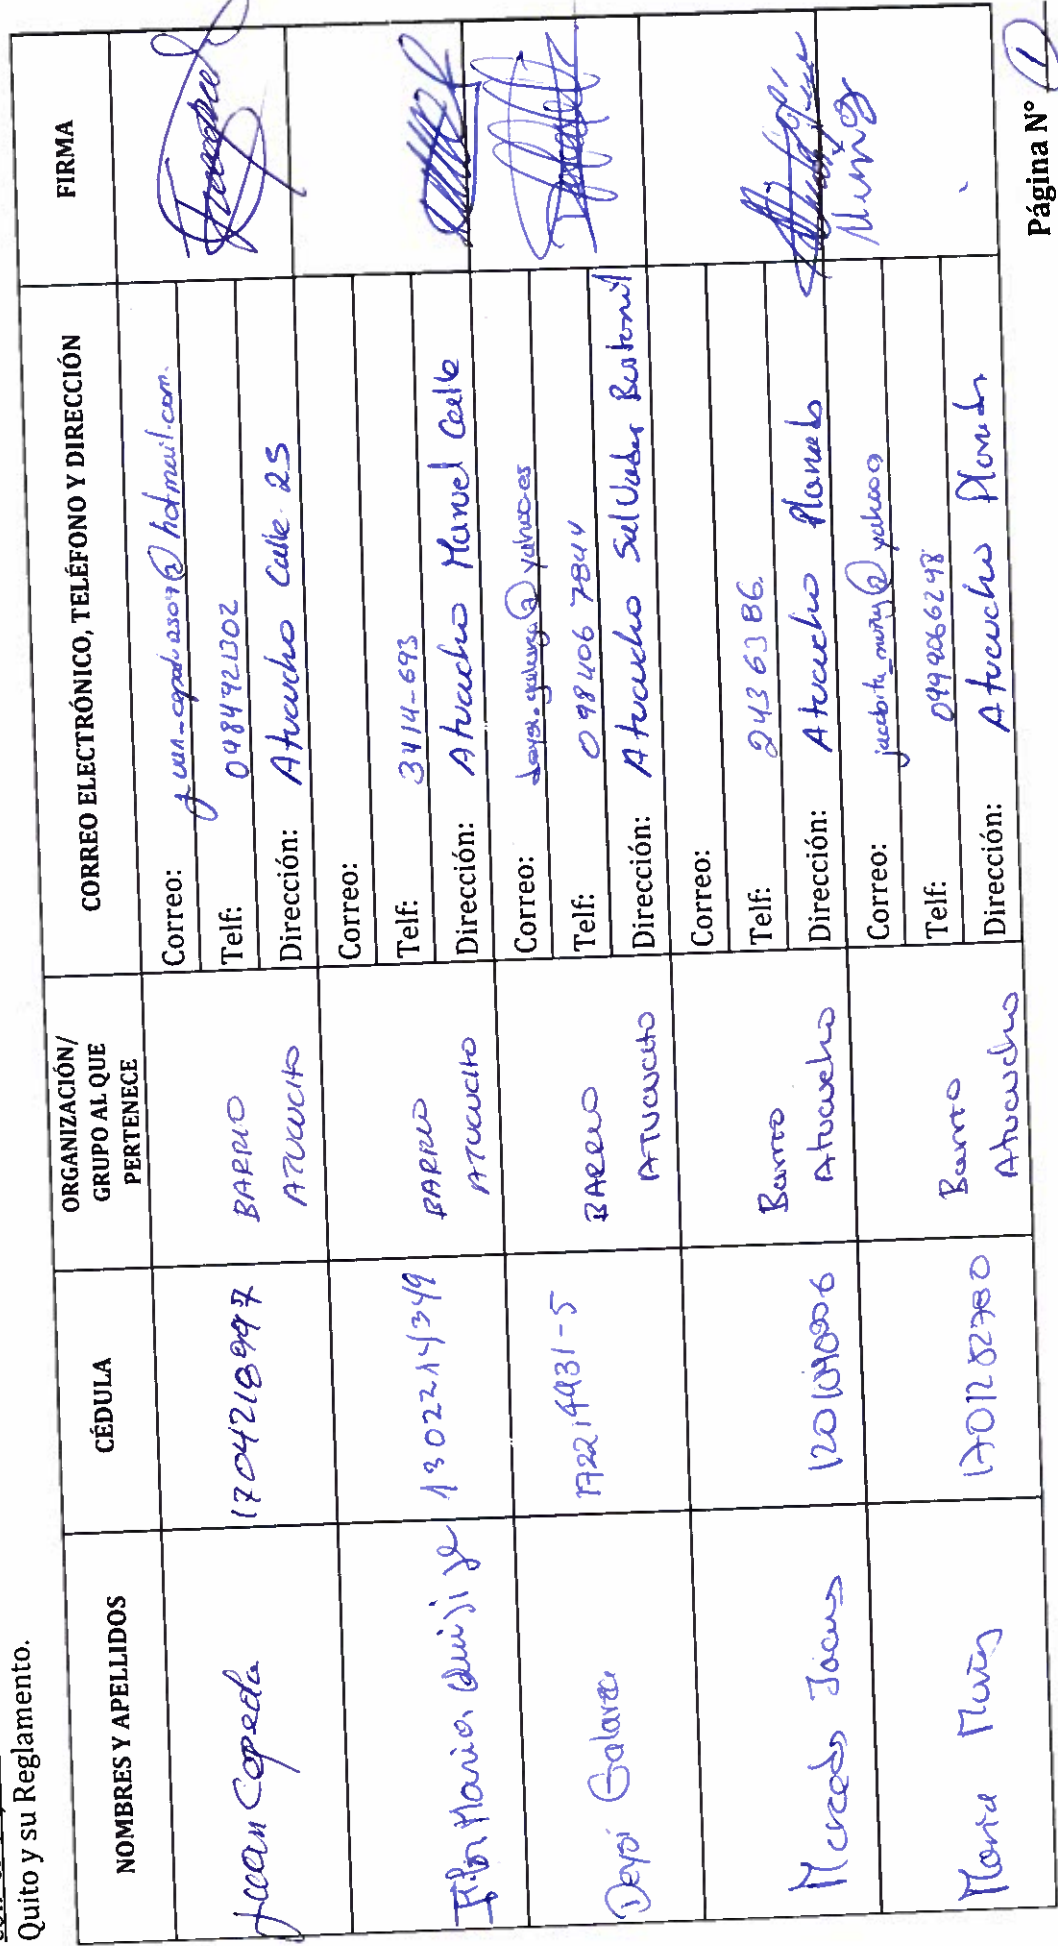 Quito y su Reglamento.
NOMBRES Y APELLIDOS
CÉDULA
ORGANIZACIÓN/
GRUPO AL QUE
PERTENECE
CORREO ELECTRÓNICO, TELÉFONO Y DIRECCIÓN
FIRMA
Juan Cepeda
1704218997
BARRIO
ATUCUCHO
Correo:
Telf: 0984921302
Dirección: Atucucho Calle 25
Flor Maria Quijije
1302214349
BARRIO
ATUCUCHO
Correo:
Telf: 3414-693
Dirección: Atucucho Manuel Calle
Deysi Galarza
172219931-5
BARRIO
ATUCUCHO
Correo: deysi.galarza@yahoo.es
Telf: 098406 7844
Dirección: Atucucho Salvador Bustamil
Mercedes Jacus
Barrio
Atucucho
Correo:
Telf: 2436386.
Dirección: Atucucho Planada
Maria Muñoz
1701282780
Barrio
Atucucho
Correo: @yahoo
Telf: 0999066298
Dirección: Atucucho Planada
Muñoz
Página N° 1